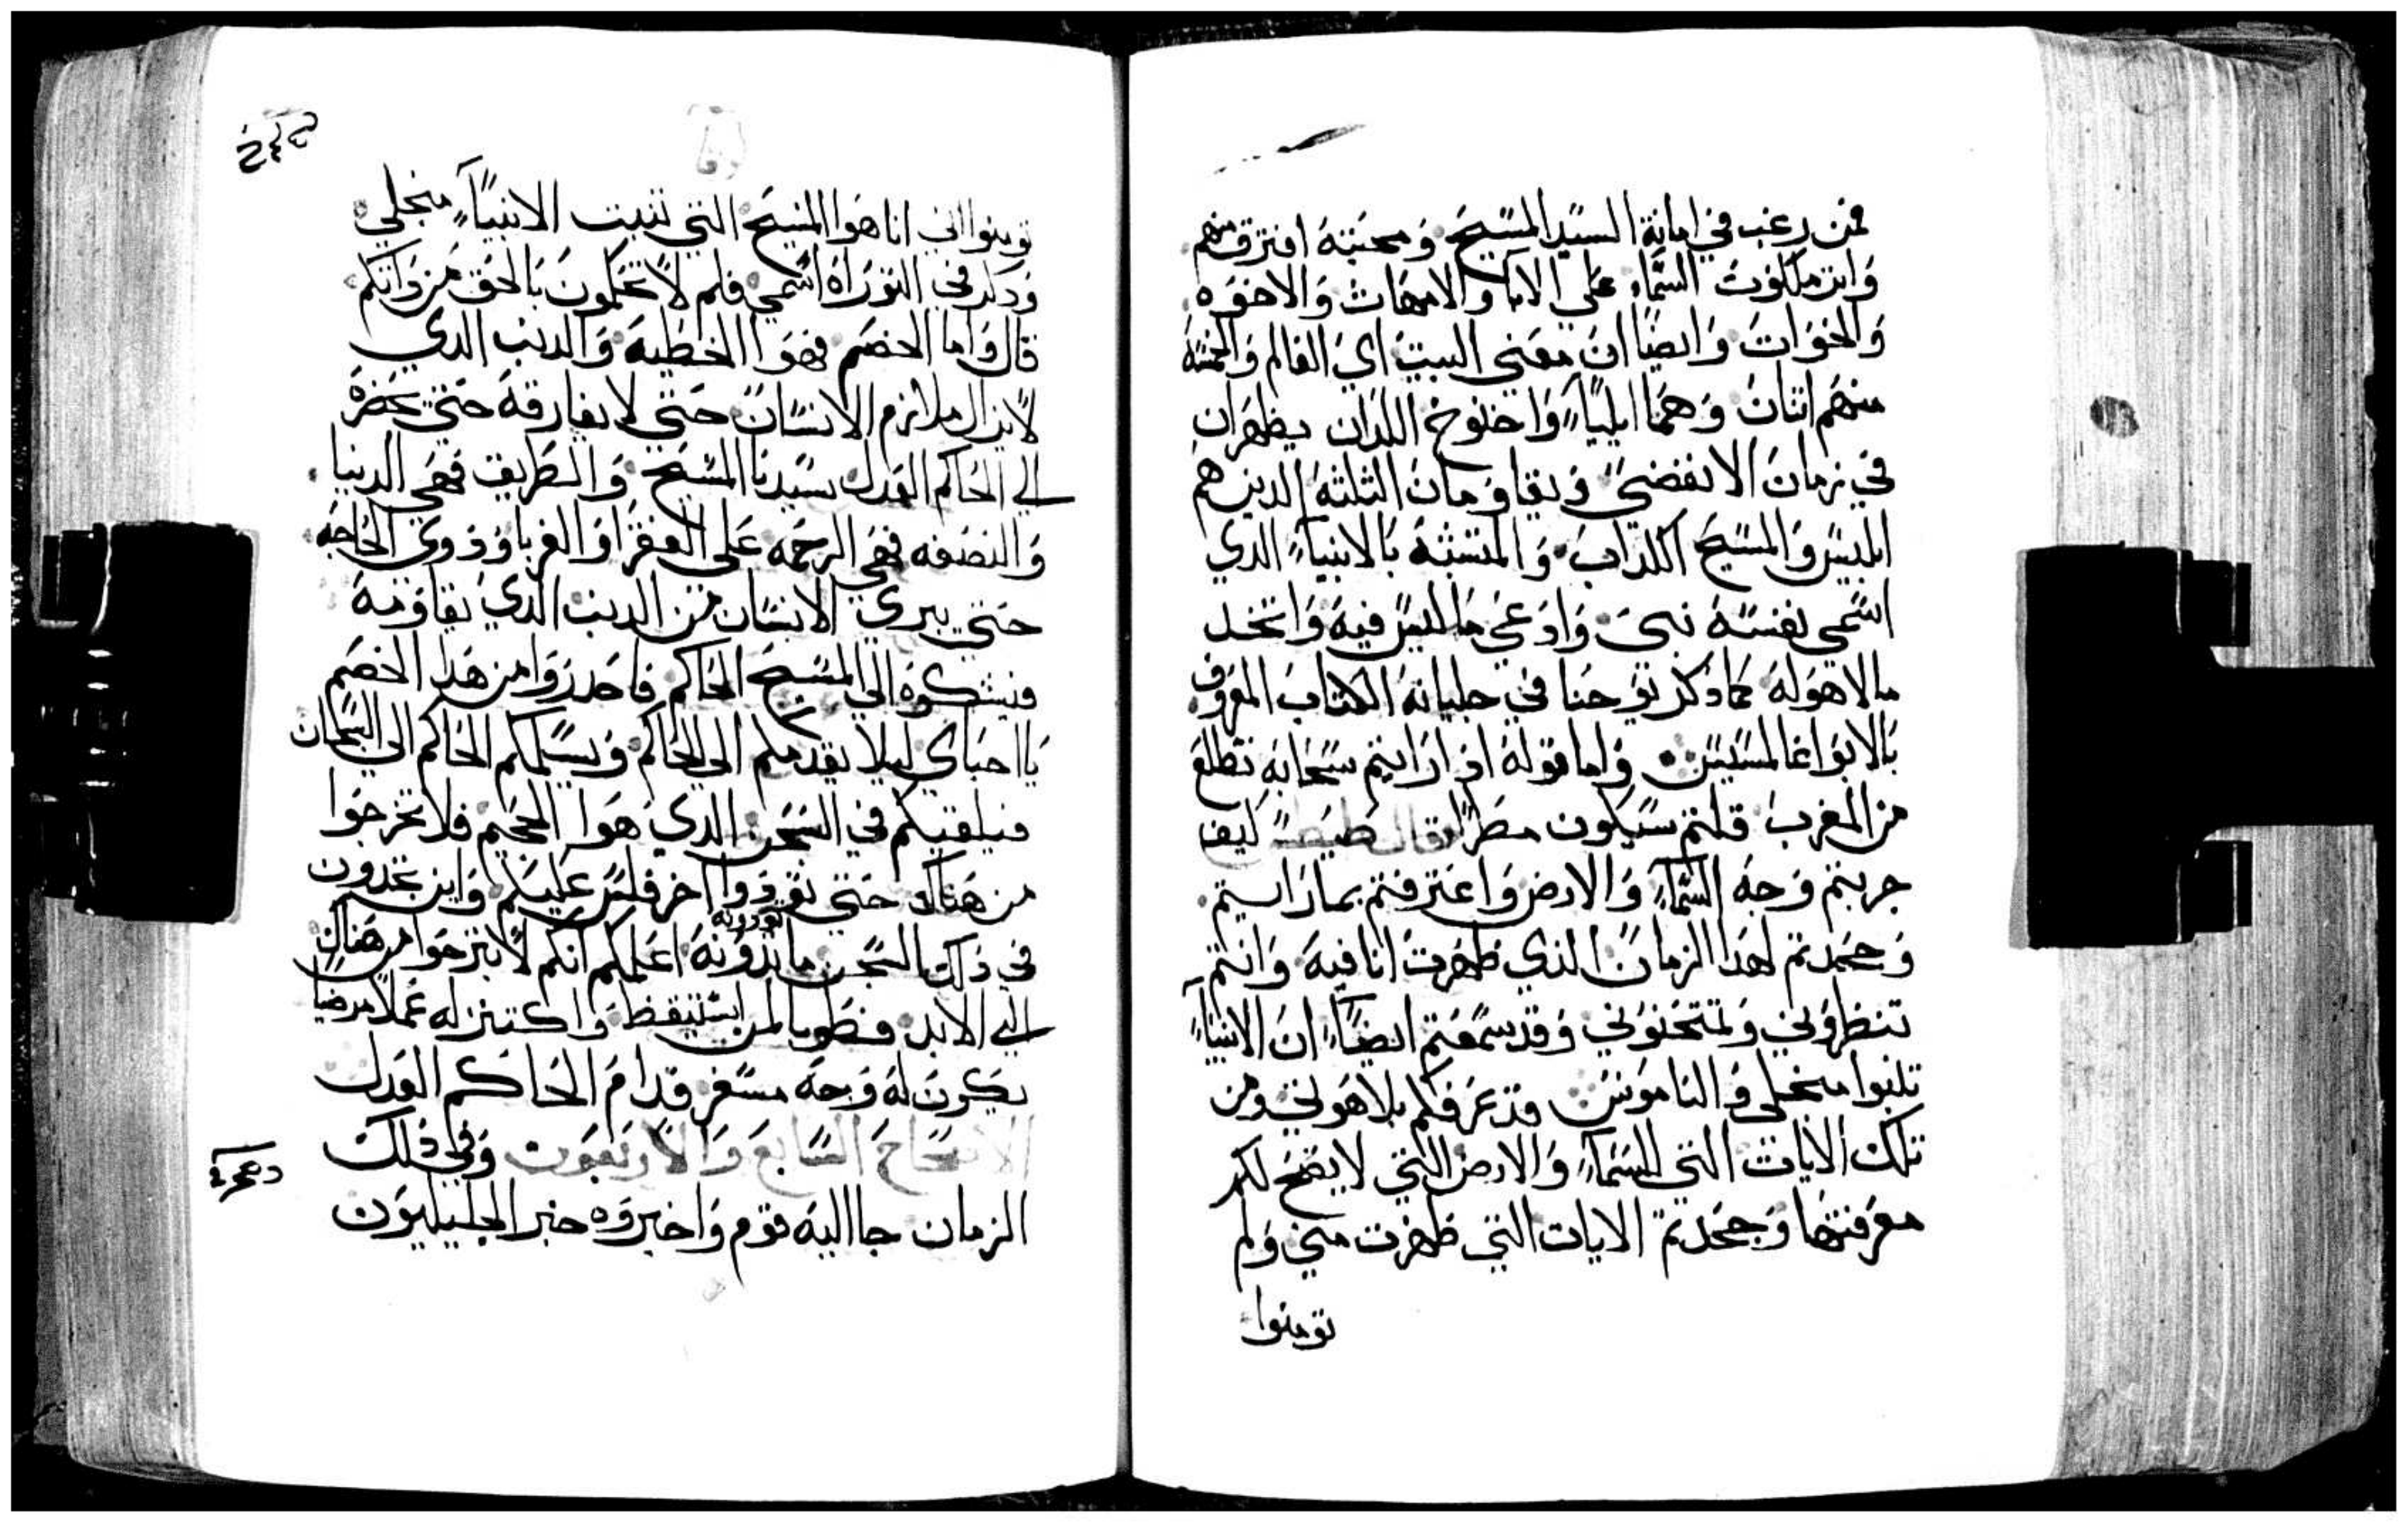 فمن رغب في امانة السيد المسيح ومحبته افترق منهم
واثر ملكوت السماء علي الابا والامهات والاخوه
والخوات وايضا ان معني البيت اي العالم والخمسة
منهم اتنان وهما ايلياء واخنوخ اللدان يظهران
في زمان الانقضي ويقاومان الثلثه الدين هم
ابليس والمسيح الكداب والمتشبه بالانبياء الدي
اسمي نفسه نبي وادعي ما ليس فيه واتخد
مالاهوله كما دكر يوحنا في جليانه الكتاب المعروف
بالابوغالمسيس واما قوله اذا رايتم سحابه تطلع
من المغرب قلتم سيكون مطرا قال كيف
جربتم وجه السماء والارض واعترفتم بما رايتم
وجحدتم لهدا الزمان الذي ظهرت انا فيه وانتم
تنظروني وتمتحنوني وقد سمعتم ايضاء ان الانبياء
تنبوا منجلي والناموس قد عرفكم بلاهوتي ومن
تلك الايات التي للسماء والارض التي لا يتضح لكم
معرفتها وجحدتم الايات التي ظهرت مني ولم
تومنوا
تومنوا اني انا هوا المسيح التي تنبت الانبياء منجلي
ودكر في التوراه اسمي فلم لا تحكمون بالحق من دواتكم
قال واما الخصم فهوا الخطية والدنب الدي
لايزال ملازم الانسان حتي لا يفارقه حتي يحضره
الي الحاكم العدل سيدنا المسيح والطريق فهي الدنيا
والنصفه فهي الرحمه علي الفقرا والغربا وذوي الحاجه
حتي يبري الانسان من الدنب الدي يقاومه
فيشكوه الي المسيح الحاكم فاحدروا من هدا الخصم
يا احباي ليلا يقدمكم الي الحاكم ويسلمكم الحاكم الي السجان
فيلقيكم في السجن الدي هوا الجحيم فلا تخرجوا
من هناك حتي توردوا اخر فلس عليكم واين تجدون
في ذلك السجن ما تدونه توردونه اعلمكم انكم لا تبرحوا من هناك
الي الابد فطوبا لمن استيقظ واكتنز له عملا مرضيا
يكون له وجه مسفر قدام الحاكم العدل
الاصحاح السابع والاربعون وفي ذلك
الزمان جا اليه قوم واخبروه خبر الجليليون